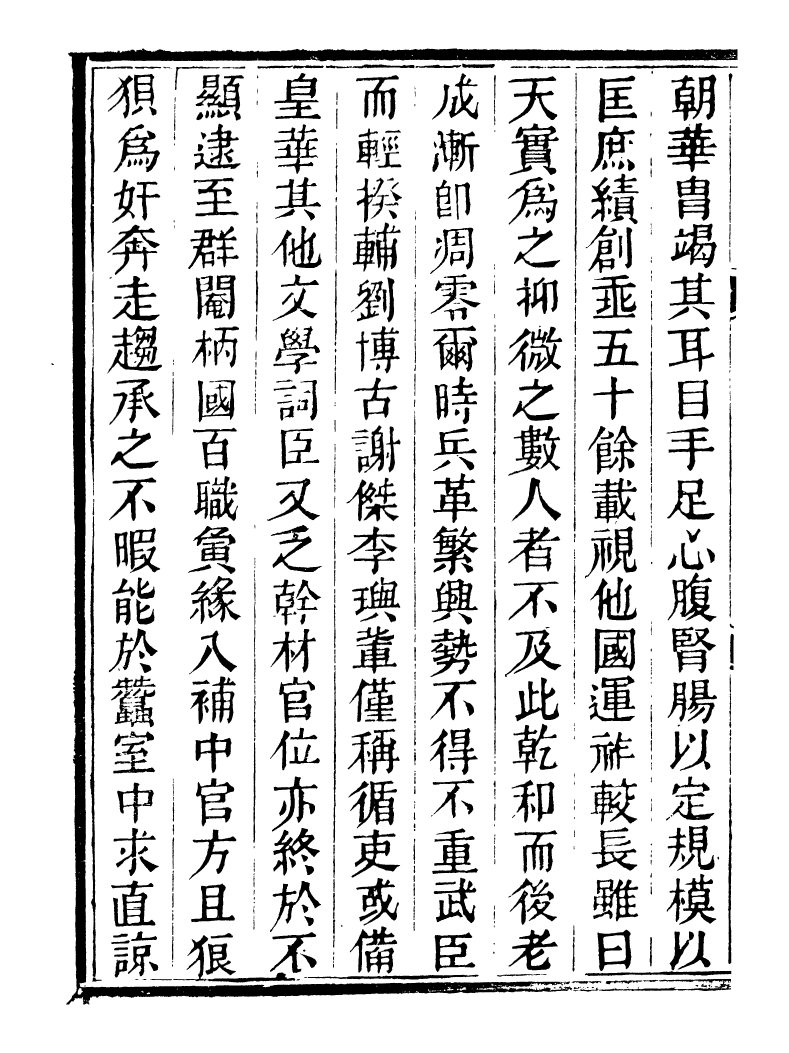 朝華胄竭其耳目手足心腹腎腸以定規模以
匡庶績創垂五十餘載視他國運祚較長雖曰
天實爲之抑微之數人者不及此乾和而後老
成漸卽凋零爾時兵革繁興勢不得不重武臣
而輕揆輔劉博古謝傑李璵輩僅稱循吏或備
皇華其他文學詞臣又乏幹材官位亦終於不
顯逮至群閹柄國百職夤緣入補中官方且狼
狽爲奸奔走趨承之不暇能於蠶室中求直諒